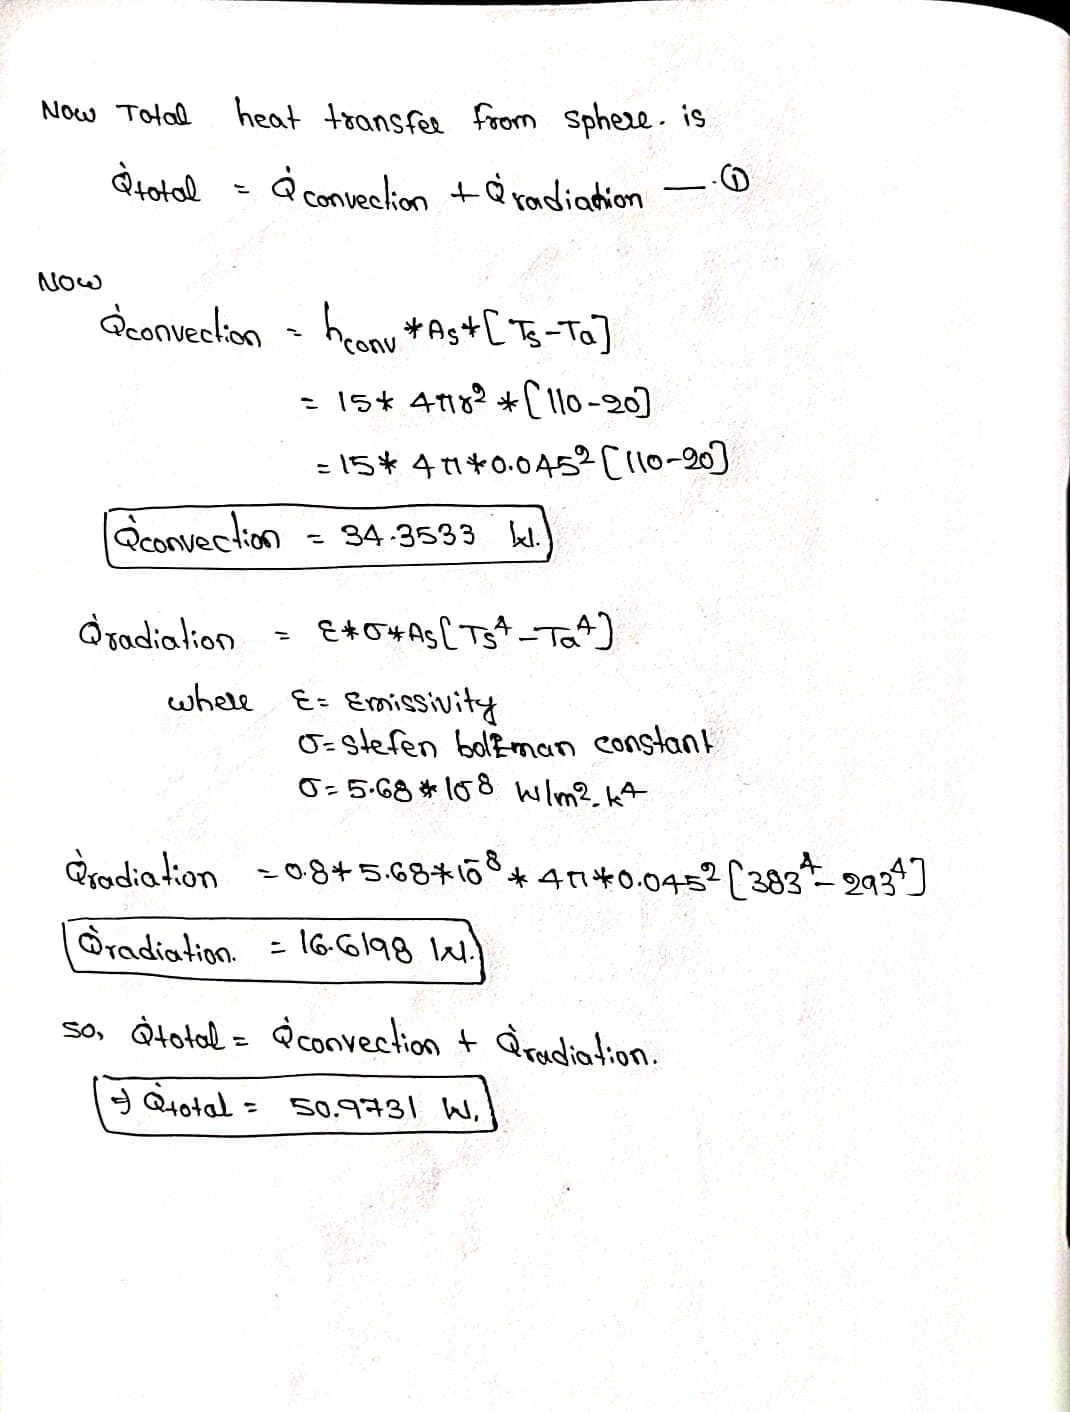 Now Total heat transfer from sphere. is
Q̇total = Q̇convection + Q̇radiation — ①
Now
Q̇convection = hconv * As * [Ts - Ta]
= 15 * 4πr² * [110-20]
= 15 * 4π * 0.045² [110-20]
Q̇convection = 34.3533 W.
Q̇radiation = ε*σ*As[Ts⁴ - Ta⁴]
where ε = Emissivity
σ = stefen boltzman constant
σ = 5.68 * 10⁻⁸ W/m².k⁴
Q̇radiation = 0.8 * 5.68 * 10⁻⁸ * 4π * 0.045² [383⁴ - 293⁴]
Q̇radiation. = 16.6198 W.
so, Q̇total = Q̇convection + Q̇radiation.
⇒ Q̇total = 50.9731 W.